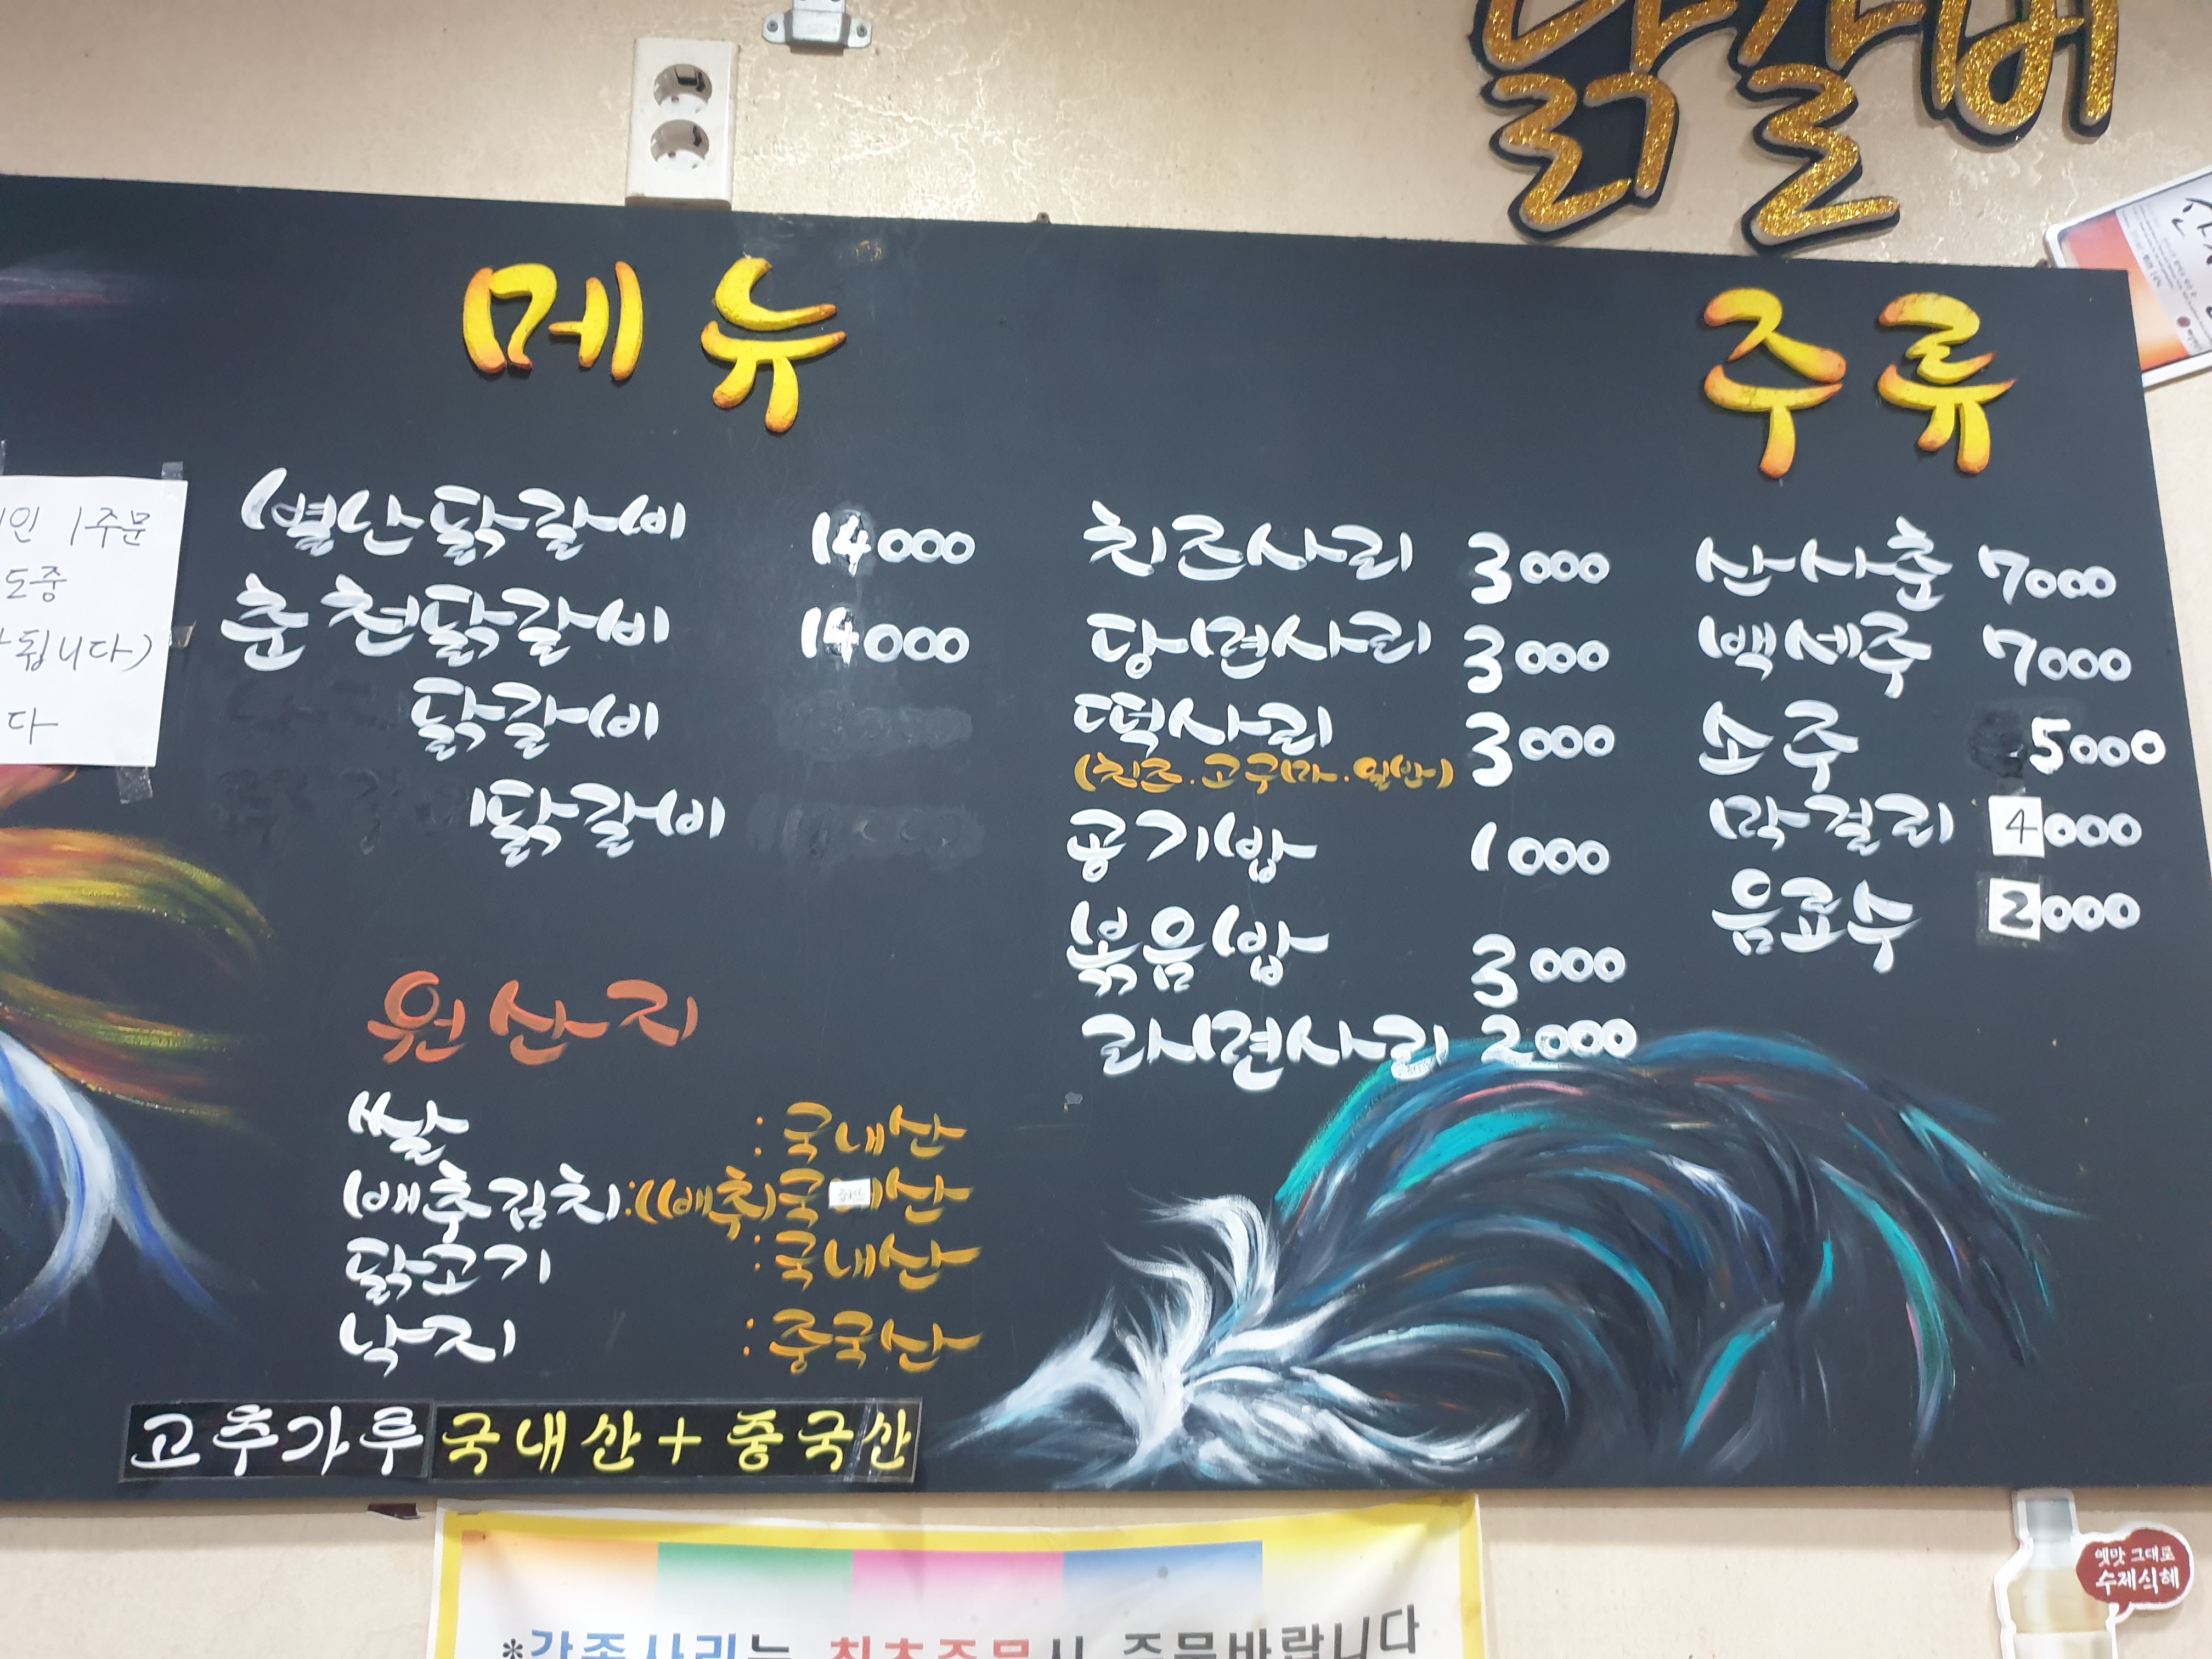 닭갈비
메뉴
주류
1인 1주문
도중
됩니다)
다
별난닭갈비 14000
춘천닭갈비 14000
닭갈비
닭갈비
치즈사리 3000
당면사리 3000
떡사리 3000
(치즈.고구마.일반)
공기밥 1000
볶음밥 3000
라면사리 2000
산사춘 7000
백세주 7000
소주 5000
막걸리 4000
음료수 2000
원산지
쌀 :국내산
배추김치:(배추)국산
닭고기 :국내산
낙지 :중국산
고추가루 국내산+중국산
*각종사리는 최초주문시 주문바랍니다
옛맛 그대로
수제식혜